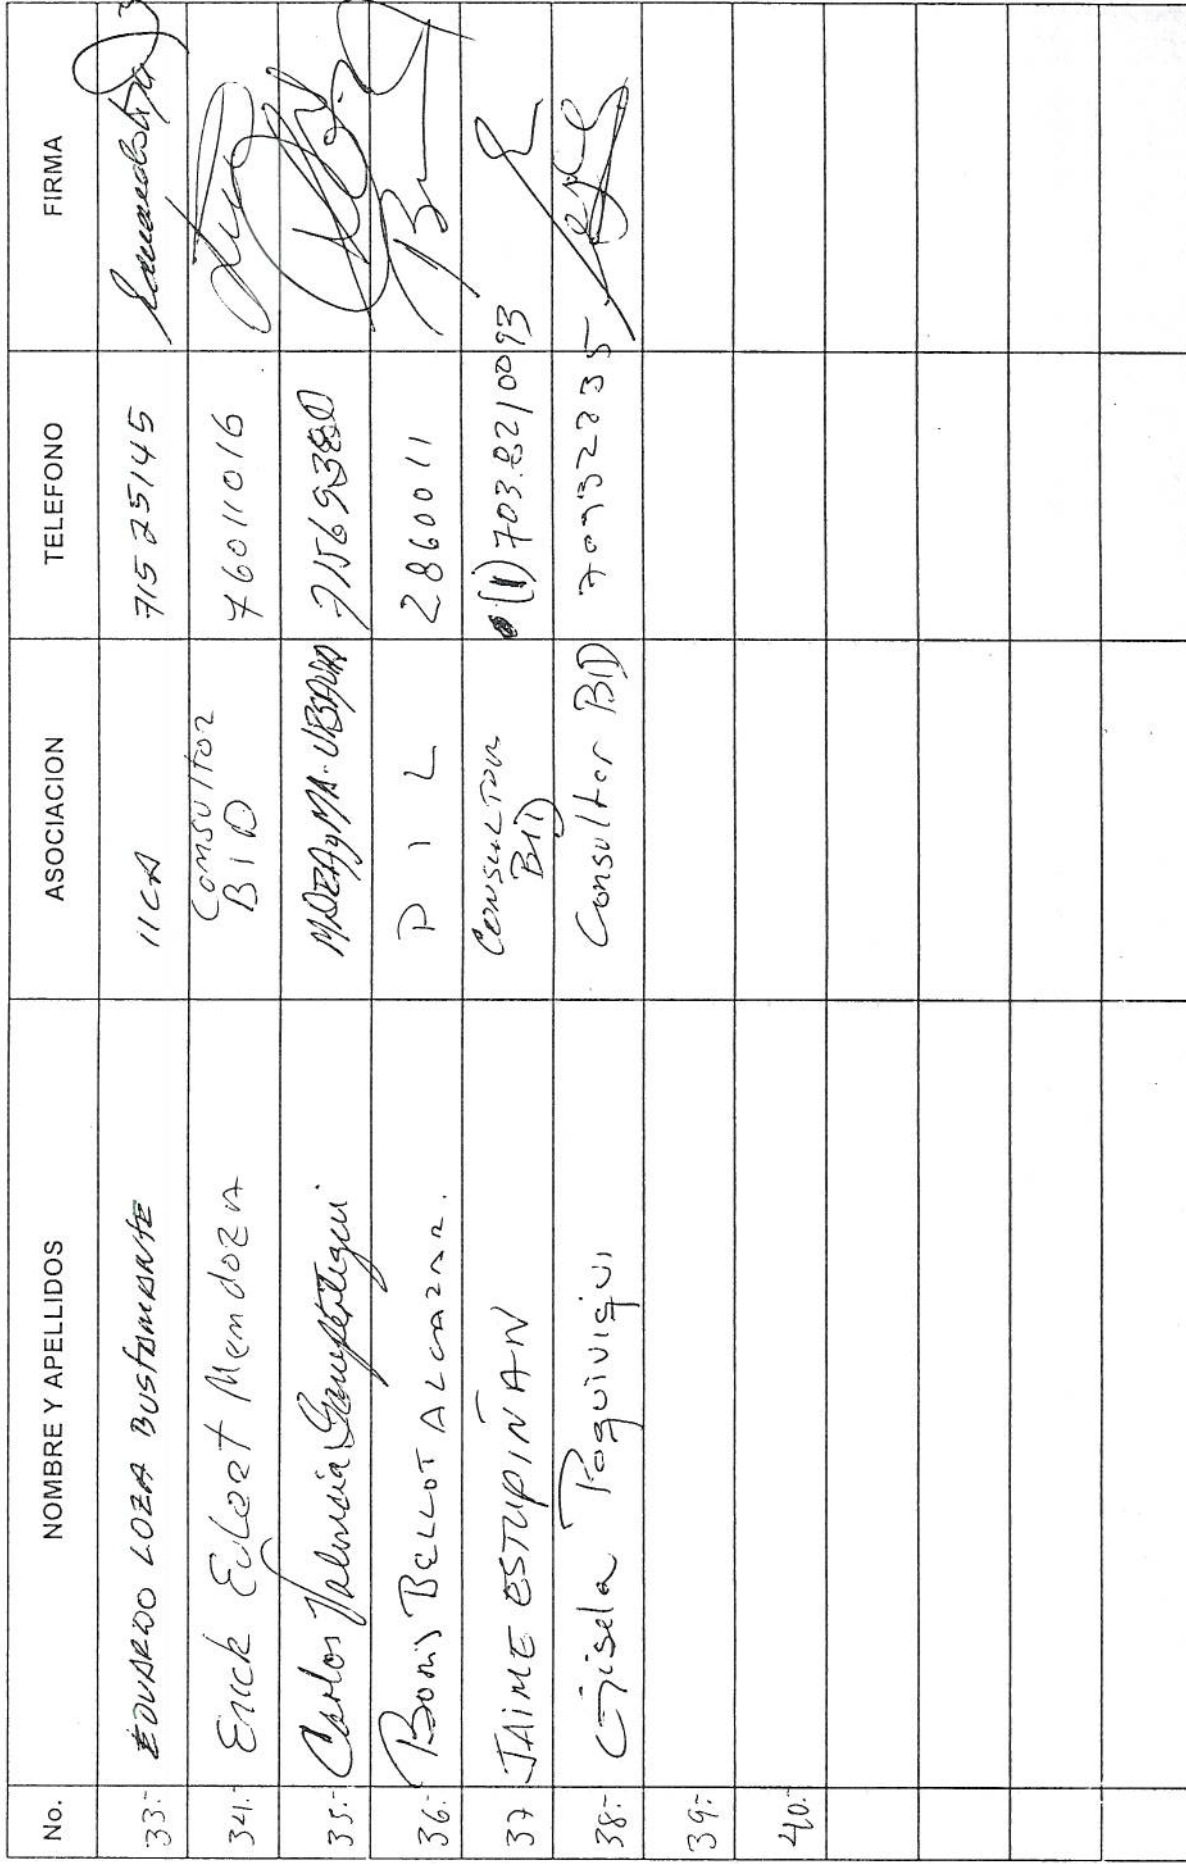 No. NOMBRE Y APELLIDOS ASOCIACION TELEFONO FIRMA
33.- EDUARDO LOZA BUSTAMANTE IICA 71525145
34.- Erick Mendoza Consultor BID 76011016
35.- Carlos Valencia
36.- Boris BELLOT ALCAZAR. P I L 2860011
37 JAIME ESTUPIÑAN CONSULTOR BID (1) 703.8210093
38.- Gisela Consultor BID 70932235
39.-
40.-